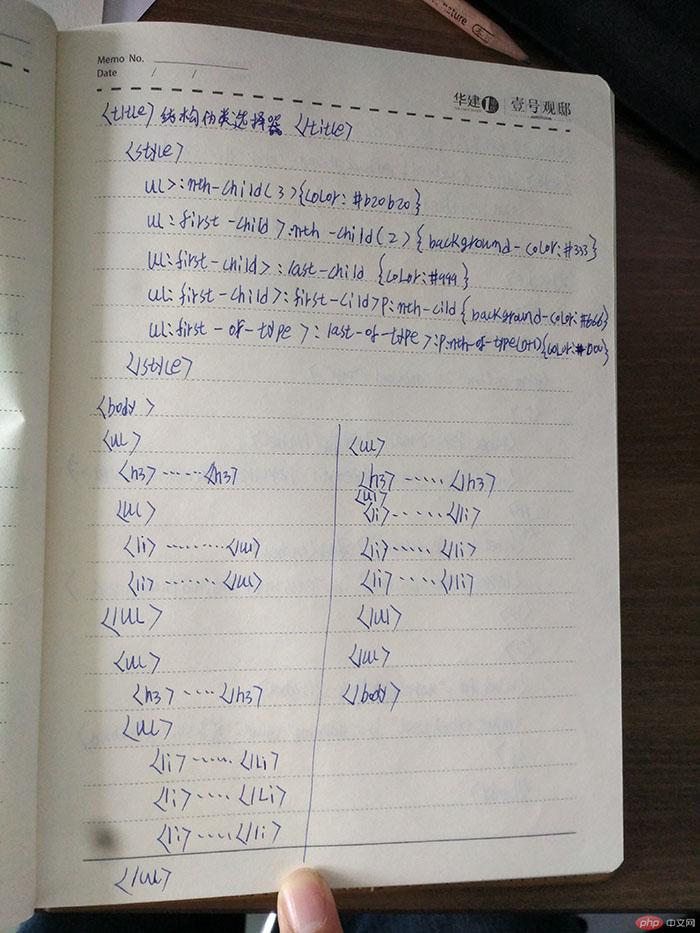 ature
Memo No.
Date / /
华建 1 壹号观邸
<title> 结构伪类选择器 </title>
<style>
ul>:nth-child(3){color:#b20b20}
ul:first-child>:nth-child(2){background-color:#333}
ul:first-child>:last-child {color:#999}
ul:first-child>:first-cild>p:nth-cild{background-color:#666}
ul:first-of-type>:last-of-type>:p:nth-of-type(n+1){color:#000}
</style>
<body>
<ul>
<h3>……</h3>
<ul>
<li>………</ul>
<li>………</ul>
</UL>
<ul>
<h3>……</h3>
<ul>
<li>……</Li>
<li>……</Li>
<li>……</li>
</ul>
<ul>
<h3>……</h3>
<ul>
<li>……</li>
<li>……</li>
<li>……</li>
</ul>
</ul>
</body>
php 中文网